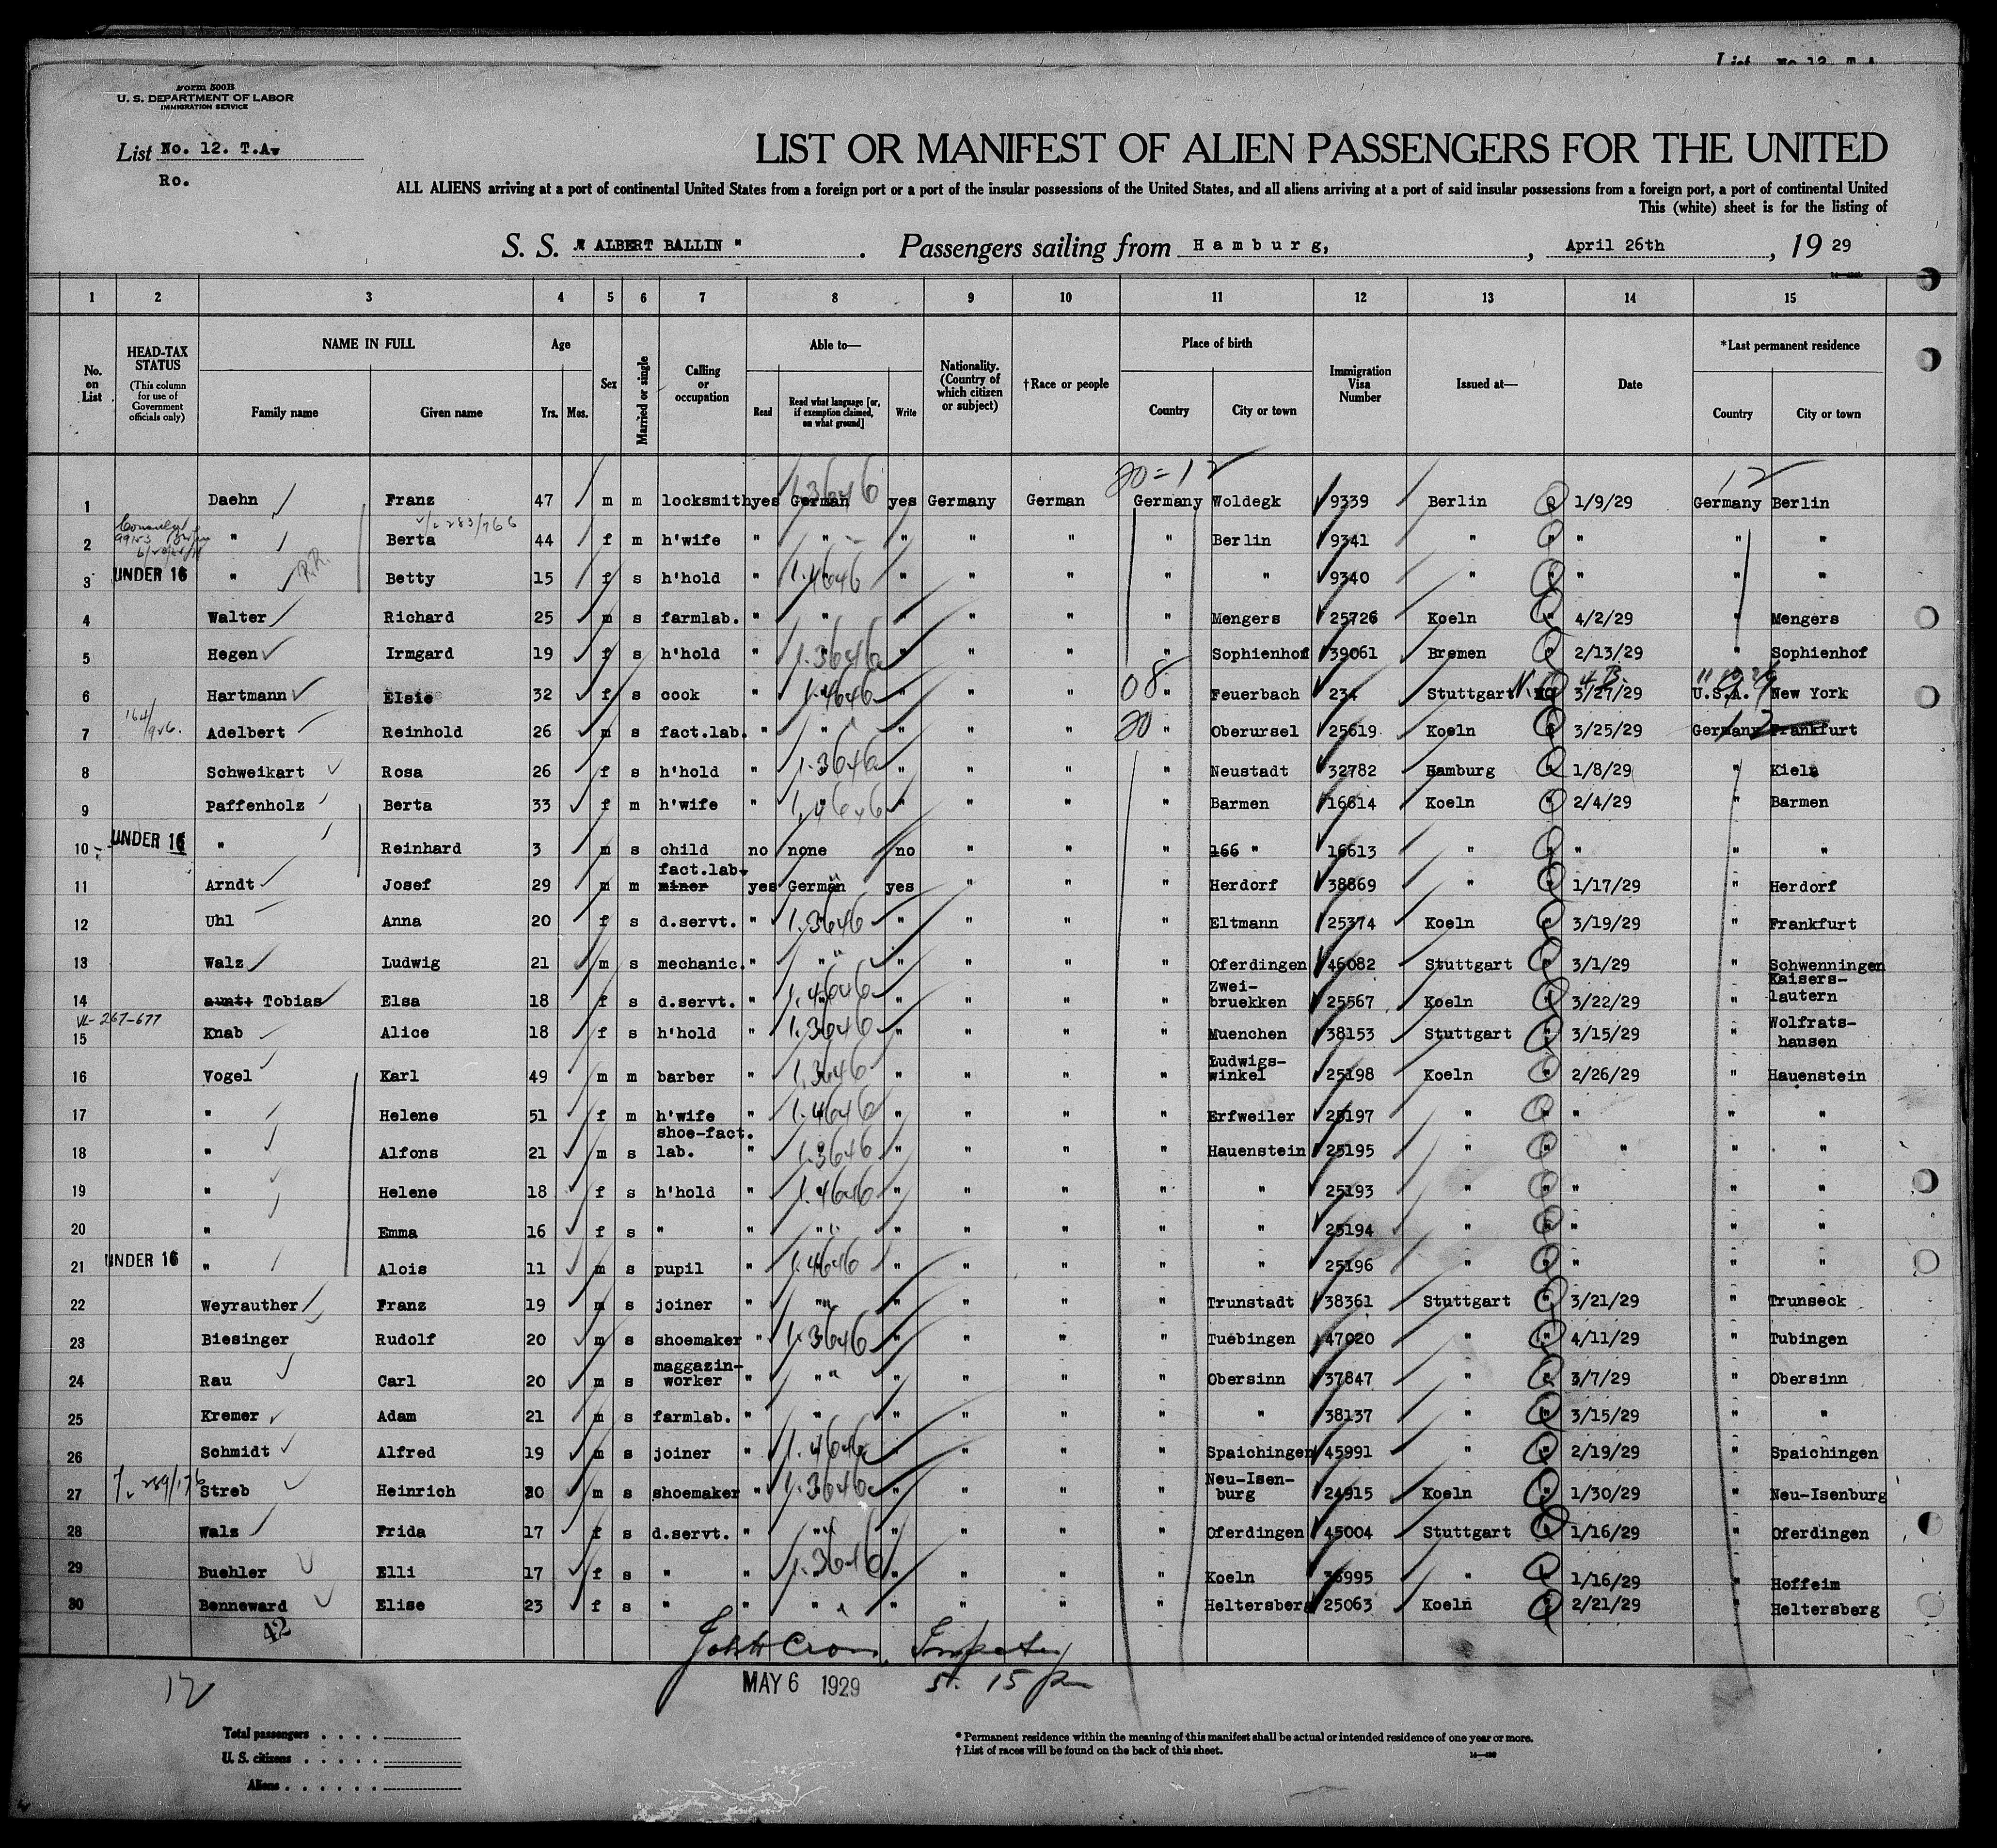 List No 12 T.A
Form 500B
U. S. DEPARTMENT OF LABOR
IMMIGRATION SERVICE
List No. 12. T.A.
Ro.
LIST OR MANIFEST OF ALIEN PASSENGERS FOR THE UNITED
ALL ALIENS arriving at a port of continental United States from a foreign port or a port of the insular possessions of the United States, and all aliens arriving at a port of said insular possessions from a foreign port, a port of continental United
This (white) sheet is for the listing of
S. S. " ALBERT BALLIN " . Passengers sailing from Hamburg, , April 26th , 19 29
1 2 3 4 5 6 7 8 9 10 11 12 13 14 15
No. on List
HEAD-TAX STATUS
(This column for use of Government officials only)
NAME IN FULL
Family name Given name
Age
Yrs. Mos.
Sex
Married or single
Calling or occupation
Able to—
Read
Read what language [or, if exemption claimed, on what ground]
Write
Nationality. (Country of which citizen or subject)
†Race or people
Place of birth
Country City or town
Immigration Visa Number
Issued at—
Date
*Last permanent residence
Country City or town
20=12 12
1 Daehn Franz 47 m m locksmith yes German yes Germany German Germany Woldegk 9339 Berlin 1/9/29 Germany Berlin
283/766
2 " Berta 44 f m h'wife " " " " " " Berlin 9341 " " " "
3 UNDER 16 " R.R. Betty 15 f s h'hold " " " " " " " 9340 " " " "
4 Walter Richard 25 m s farmlab. " " " " " " Mengers 25726 Koeln 4/2/29 " Mengers
5 Hegen Irmgard 19 f s h'hold " " " " " " Sophienhof 39061 Bremen 2/13/29 " Sophienhof
6 Hartmann Elsie 32 f s cook " " " " " 08 " Feuerbach 234 Stuttgart 3/27/29 U.S.A. New York
164/926.
7 Adelbert Reinhold 26 m s fact.lab. " " " " " 20 " Oberursel 25619 Koeln 3/25/29 Germany Frankfurt
8 Schweikart Rosa 26 f s h'hold " " " " " " Neustadt 32782 Hamburg 1/8/29 " Kiel
9 Paffenholz Berta 33 f m h'wife " " " " " " Barmen 16614 Koeln 2/4/29 " Barmen
10 UNDER 16 " Reinhard 3 m s child no none no " " " 166 " 16613 " " " "
fact.lab.
11 Arndt Josef 29 m m miner yes German yes " " " Herdorf 38869 " 1/17/29 " Herdorf
12 Uhl Anna 20 f s d.servt. " " " " " " Eltmann 25374 Koeln 3/19/29 " Frankfurt
13 Walz Ludwig 21 m s mechanic. " " " " " " Oferdingen 46082 Stuttgart 3/1/29 " Schwenningen
Zwei- Kaisers-
14 aunt. Tobias Elsa 18 f s d.servt. " " " " " " bruekken 25567 Koeln 3/22/29 " lautern
VL-267-677 Wolfrats-
15 Knab Alice 18 f s h'hold " " " " " " Muenchen 38153 Stuttgart 3/15/29 " hausen
Ludwigs-
16 Vogel Karl 49 m m barber " " " " " " winkel 25198 Koeln 2/26/29 " Hauenstein
17 " Helene 51 f m h'wife " " " " " " Erfweiler 25197 " " " "
shoe-fact.
18 " Alfons 21 m s lab. " " " " " " Hauenstein 25195 " " " "
19 " Helene 18 f s h'hold " " " " " " " 25193 " " " "
20 " Emma 16 f s " " " " " " " " 25194 " " " "
21 UNDER 16 " Alois 11 m s pupil " " " " " " " 25196 " " " "
22 Weyrauther Franz 19 m s joiner " " " " " " Trunstadt 38361 Stuttgart 3/21/29 " Trunseck
23 Biesinger Rudolf 20 m s shoemaker " " " " " " Tuebingen 47020 " 4/11/29 " Tubingen
maggazin-
24 Rau Carl 20 m s worker " " " " " " Obersinn 37847 " 3/7/29 " Obersinn
25 Kremer Adam 21 m s farmlab. " " " " " " " 38137 " 3/15/29 " "
26 Schmidt Alfred 19 m s joiner " " " " " " Spaichingen 45991 " 2/19/29 " Spaichingen
Neu-Isen-
27 Streb Heinrich 20 m s shoemaker " " " " " " burg 24915 Koeln 1/30/29 " Neu-Isenburg
28 Walz Frida 17 f s d.servt. " " " " " " Oferdingen 45004 Stuttgart 1/16/29 " Oferdingen
29 Buehler Elli 17 f s " " " " " " " Koeln 36995 " 1/16/29 " Hoffeim
30 Benneward Elise 23 f s " " " " " " " Heltersberg 25063 Koeln 2/21/29 " Heltersberg
42
MAY 6 1929
12
Total passengers . . . .
U. S. citizens . . . . .
Aliens . . . . . .
* Permanent residence within the meaning of this manifest shall be actual or intended residence of one year or more.
† List of races will be found on the back of this sheet.